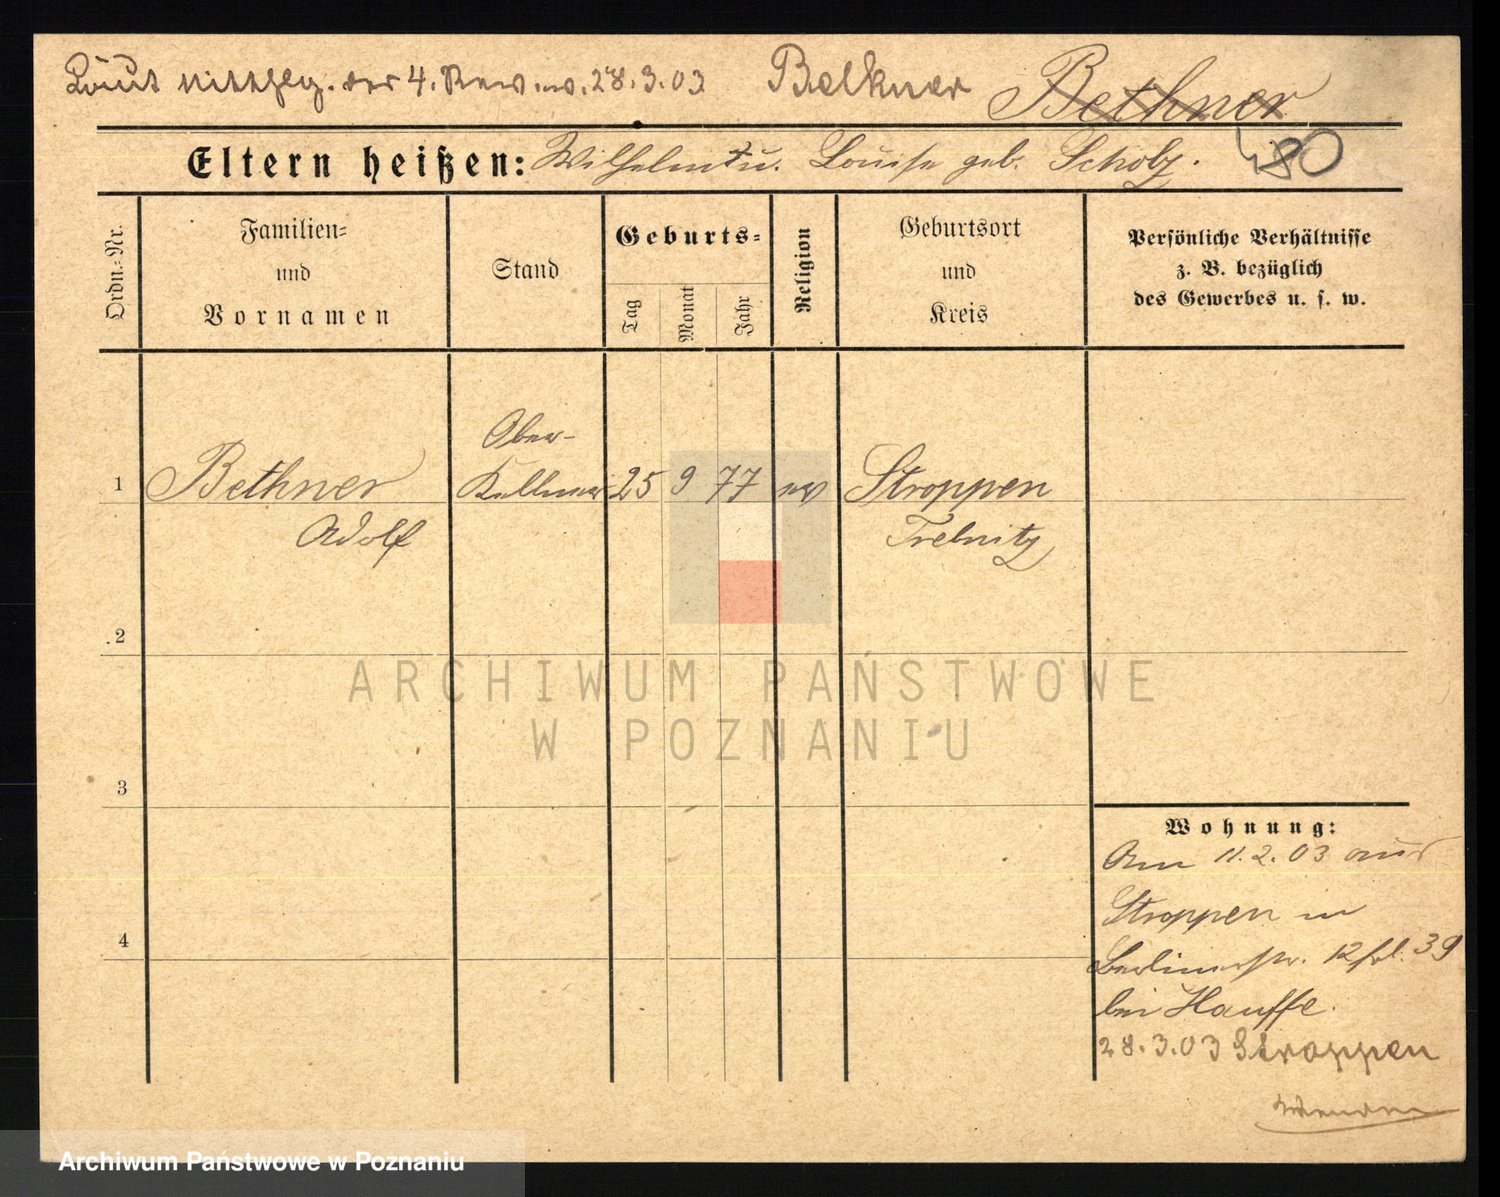 Laut Mitthlg. der 4. Rev. v. 28.3.03 Belkner Bethner
480
Eltern heißen: Wilhelm † u. Louise geb. Scholz.
Ordn.-Nr.
Familien-
und
Vornamen
Stand
Geburts-
Tag
Monat
Jahr
Religion
Geburtsort
und
Kreis
Persönliche Verhältnisse
z. B. bezüglich
des Gewerbes u. s. w.
Ober-
1 Bethner Kellner 25 9 77 ev Stroppen
Adolf Trebnitz
2
ARCHIWUM PAŃSTWOWE
W POZNANIU
3
Wohnung:
Am 11.2.03 aus
Stroppen in
4
Berlinerstr. 12 39
bei Hauffe.
28.3.03 Stroppen
Archiwum Państwowe w Poznaniu